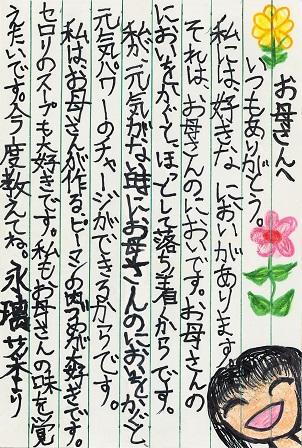 お母さんへ
いつもありがとう。
私には、好きな においがあります。
それは、お母さんのにおいです。お母さんの
においをかぐと、ほっとして落ち着くからです。
私が、元気がない時にお母さんのにおいをかぐと
元気パワーのチャージができるからです。
私は、お母さんが作る、ピーマンの肉づめが大好きです。
セロリのスープも大好きです。私も、お母さんの味を覚
えたいです。今度教えてね。 永璃 より